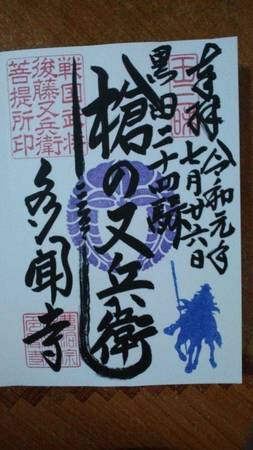 奉拝
令和元年
七月廿六日
黒田二十四騎
槍の又兵衛
多聞寺
戦国武将
後藤又兵衛
菩提所印